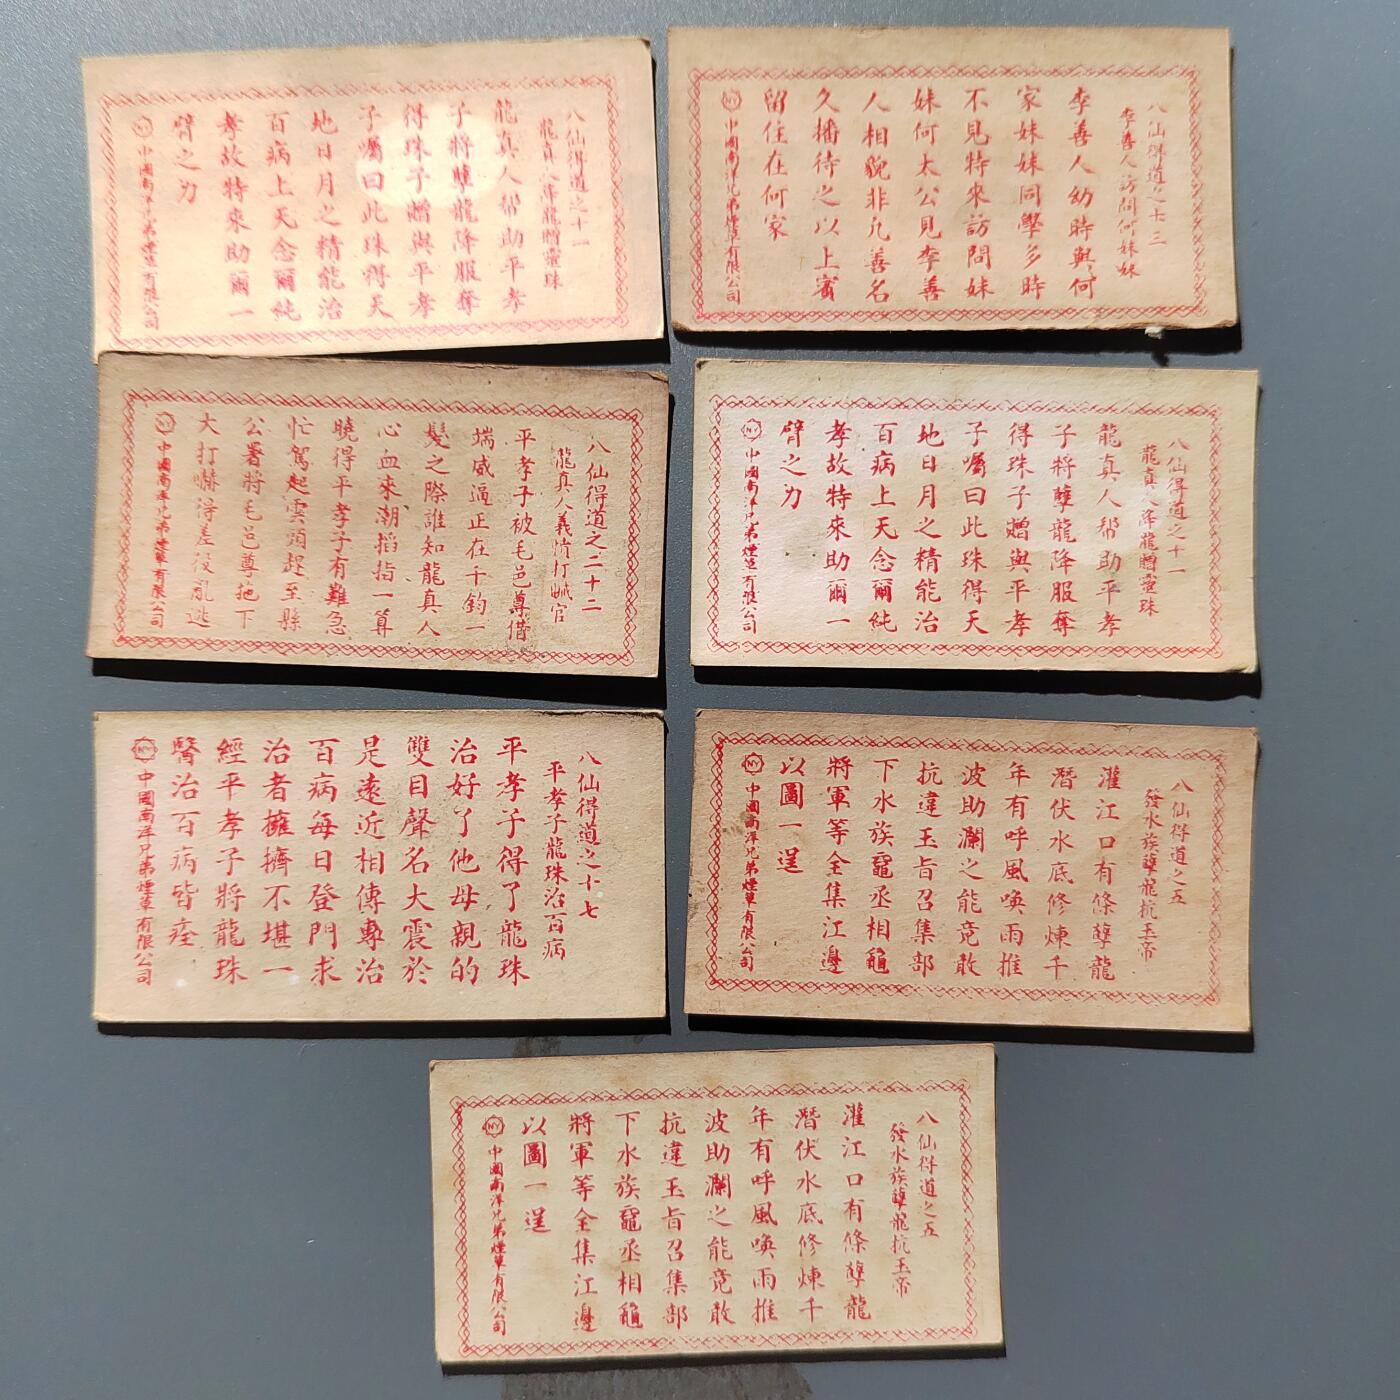 八仙得道之十一
龍真人降龍贈靈珠
龍真人幫助平孝
子將孽龍降服奪
得珠子贈與平孝
子囑曰此珠得天
地日月之精能治
百病上天念爾純
孝故特來助爾一
臂之力
NY 中國南洋兄弟煙草有限公司
八仙得道之七三
李善人訪問何妹妹
李善人幼時與何
家妹妹同學多時
不見特來訪問妹
妹何太公見李善
人相貌非凡善名
久播待之以上賓
留住在何家
NY 中國南洋兄弟煙草有限公司
八仙得道之二十二
龍真人義憤打贓官
平孝子被毛邑尊借
端威逼正在千鈞一
髮之際誰知龍真人
心血來潮掐指一算
曉得平孝子有難急
忙駕起雲頭趕至縣
公署將毛邑尊拖下
大打嚇得差役亂逃
NY 中國南洋兄弟煙草有限公司
八仙得道之十一
龍真人降龍贈靈珠
龍真人幫助平孝
子將孽龍降服奪
得珠子贈與平孝
子囑曰此珠得天
地日月之精能治
百病上天念爾純
孝故特來助爾一
臂之力
NY 中國南洋兄弟煙草有限公司
八仙得道之十七
平孝子龍珠治百病
平孝子得了龍珠
治好了他母親的
雙目聲名大震於
是遠近相傳專治
百病每日登門求
治者擁擠不堪一
經平孝子將龍珠
醫治百病皆痊
NY 中國南洋兄弟煙草有限公司
八仙得道之五
發水族孽龍抗玉帝
灌江口有條孽龍
潛伏水底修煉千
年有呼風喚雨推
波助瀾之能竟敢
抗違玉旨召集部
下水族黿丞相龜
將軍等全集江邊
以圖一逞
NY 中國南洋兄弟煙草有限公司
八仙得道之五
發水族孽龍抗玉帝
灌江口有條孽龍
潛伏水底修煉千
年有呼風喚雨推
波助瀾之能竟敢
抗違玉旨召集部
下水族黿丞相龜
將軍等全集江邊
以圖一逞
NY 中國南洋兄弟煙草有限公司